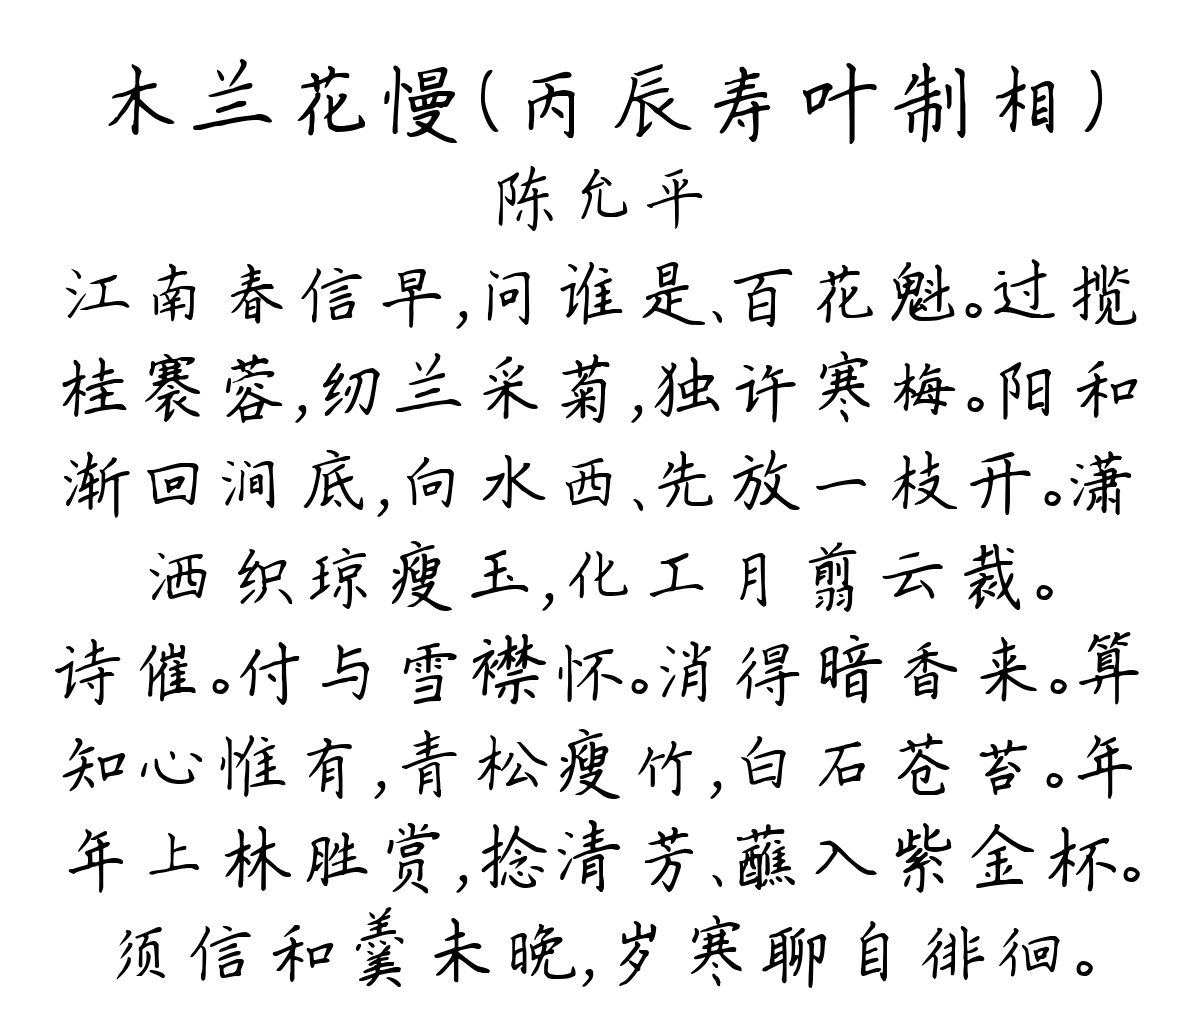 木兰花慢(丙辰寿叶制相)
陈允平
江南春信早,问谁是、百花魁。过揽
桂褰蓉,纫兰采菊,独许寒梅。阳和
渐回涧底,向水西、先放一枝开。潇
洒织琼瘦玉,化工月翦云裁。
诗催。付与雪襟怀。消得暗香来。算
知心惟有,青松瘦竹,白石苍苔。年
年上林胜赏,捻清芳、蘸入紫金杯。
须信和羹未晚,岁寒聊自徘徊。